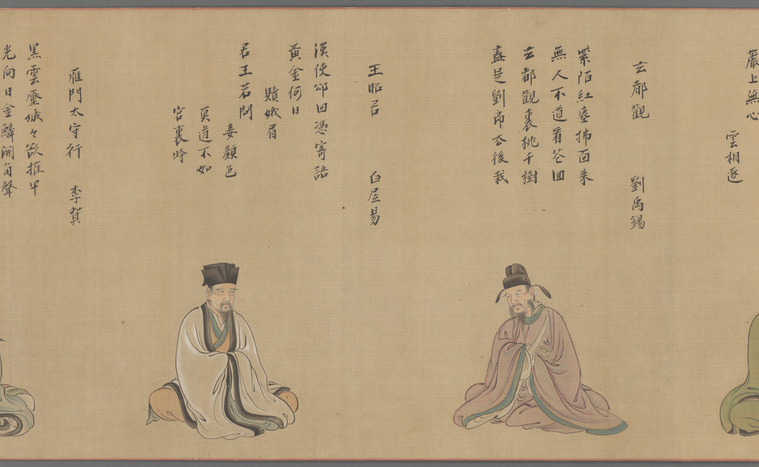 巖上無心
雲相逐
玄都觀 劉禹錫
紫陌紅塵拂面来
無人不道看花回
玄都觀裏桃千樹
盡是劉郎去後栽
王昭君 白居易
漢使却回憑寄語
黄金何日
贖娥眉
君王若問
妾顔色
莫道不如
宮裏時
雁門太守行 李賀
黒雲壓城々欲摧甲
光向日金鱗開角聲